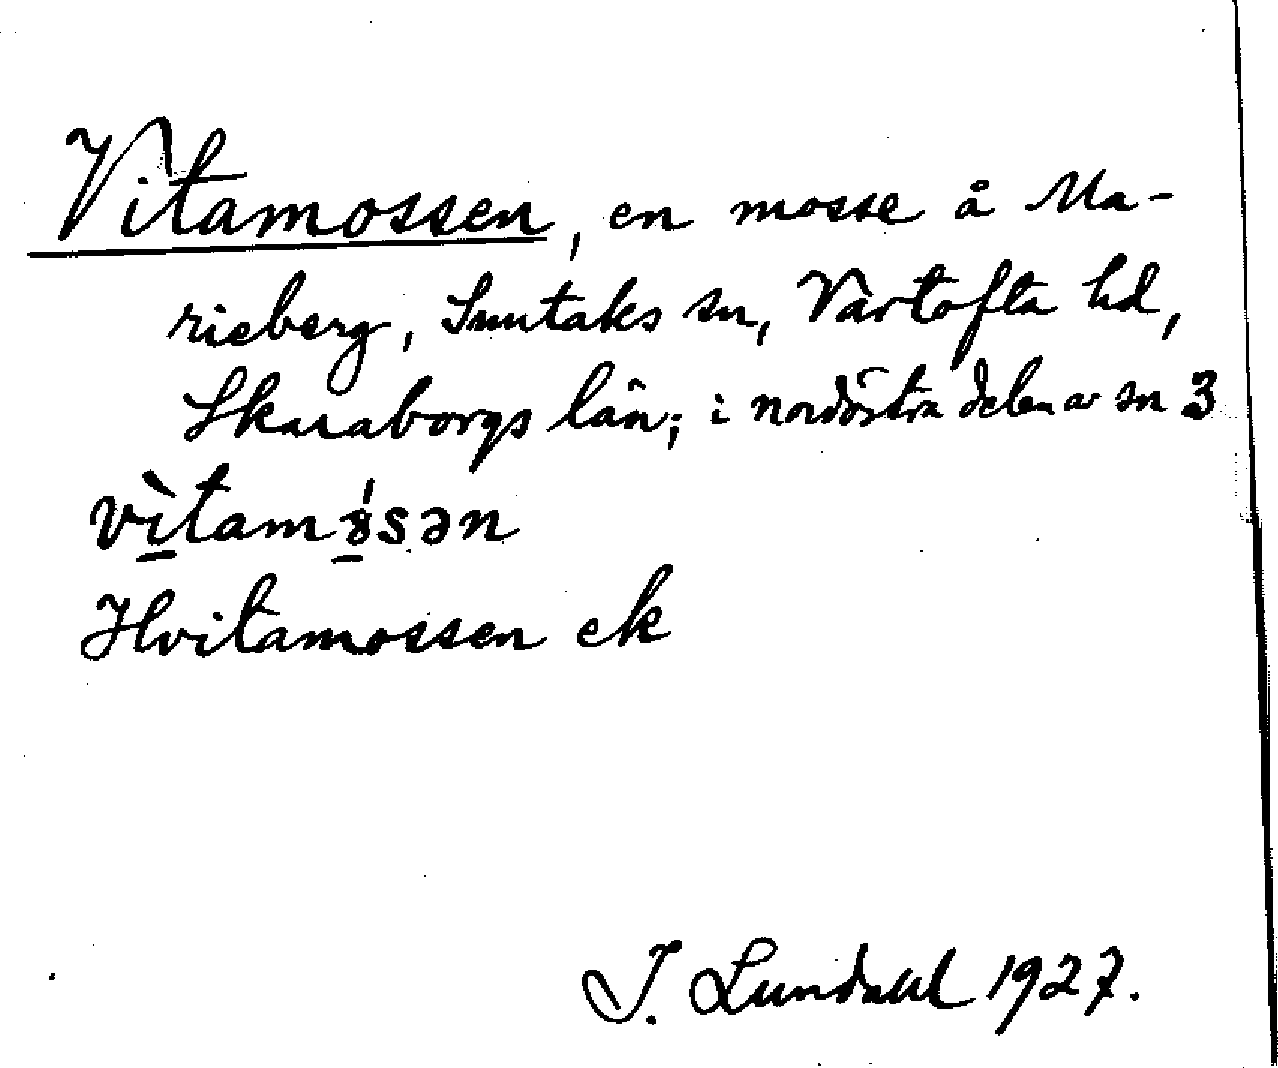 Vitamossen, en mosse å Ma-
rieberg, Suntaks sn, Vartofta hd,
Skaraborgs län; i nordöstra delen av sn 3
vìtamɤ́sən
Hvitamossen ek
I. Lundahl 1927.